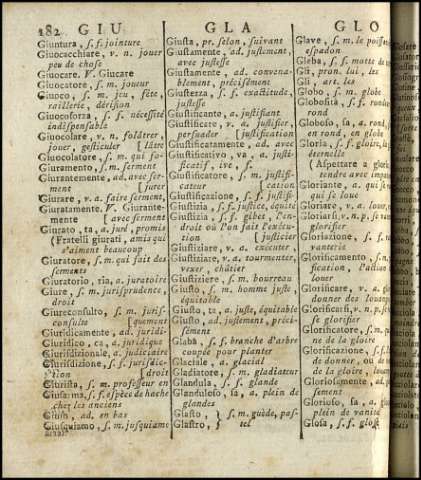 282 GIU
GLA
GLO
Giuntura, s. f. jointure
Giuocacchiare, v. n. jouer
peu de chose
Giuocare. V. Giucare
Giuocatore, s. m. joueur
Giuoco, s. m. jeu, fête,
raillerie, dérision
Giuocoforza, s. f. nécessité
indispensable
Giuocolare, v. n. folâtrer,
jouer, gesticuler [lâtre
Giuocolatore, s. m. qui fo-
Giuramento, s. m. serment
Giurantemente, ad. avec ser-
ment [jurer
Giurare, v. a. faire serment,
Giuratamente. V. Giurante-
mente [avec serment
Giurato, ta, a. juré, promis
(Fratelli giurati, amis qui
s'aiment beaucoup
Giuratore, s. m. qui fait des
serments
Giuratorio, ria, a. juratoire
Giure, s. m. jurisprudence,
droit
Giureconsulto, s. m. juris-
consulte [quement
Giuridicamente, ad. juridi-
Giuridico, ca, a. juridique
Giurisdizionale, a. judiciaire
Giurisdizione, s. f. juridic-
tion [droit
Giurista, s. m. professeur en
Giusarma, s. f. espèce de hache
chez les anciens
Giuso, ad. en bas
Giusquiamo, s. m. jusquiame
Giusta, pr. selon, suivant
Giustamente, ad. justement,
avec justesse
Giustamente, ad. convena-
blement, précisément
Giustezza, s. f. exactitude,
justesse
Giustificante, a. justifiant
Giustificare, v. a. justifier,
persuader [justification
Giustificatamente, ad. avec
Giustificativo, va, a. justi-
ficatif, ive, f.
Giustificatore, s. m. justifi-
cateur [cation
Giustificazione, s. f. justifi-
Giustizia, s. f. justice, équité
Giustizia, s. f. gibet, l'en-
droit où l'on fait l'exécu-
tion [justicier
Giustiziare, v. a. exécuter,
Giustiziare, v. a. tourmenter,
vexer, châtier
Giustiziere, s. m. bourreau
Giusto, s. m. homme juste
équitable
Giusto, ta, a. juste, équitable
Giusto, ad. justement, préci-
sément
Glaba, s. f. branche d'arbre
coupée pour planter
Glaciale, a. glacial
Gladiatore, s. m. gladiateur
Glandula, s. f. glande
Glanduloso, sa, a. plein de
glandes
Glasto, } s. m. guède, pas-
Glastro, } tel
Glave, s. m. le poisson
espadon
Gleba, s. f. motte de
Gli, pron. lui, les
Gli, art. les
Globo, s. m. globe
Globosità, s. f. rondeur
rond
Globoso, sa, a. rond,
en rond, en globe
Gloria, s. f. gloire, la
éternelle
(Aspettare a gloria
tendre avec impa
Gloriante, a. qui se
qui se loue
Gloriare, v. a. louer,
Gloriarsi, v. n. p. se
glorifier
Gloriazione, s. f.
vanterie
Glorificamento, s. m.
fication, l'action
louer
Glorificare, v. a. glor
donner des louanges
Glorificarsi, v. n. p.
se glorifier
Glorificatore, s. m. qui
ne de la gloire
Glorificazione, s. f.
de donner, ou de
de la gloire, louan
Gloriosamente, ad.
sement
Glorioso, sa, a. glo
plein de vanité
Glosa, s. f. glose